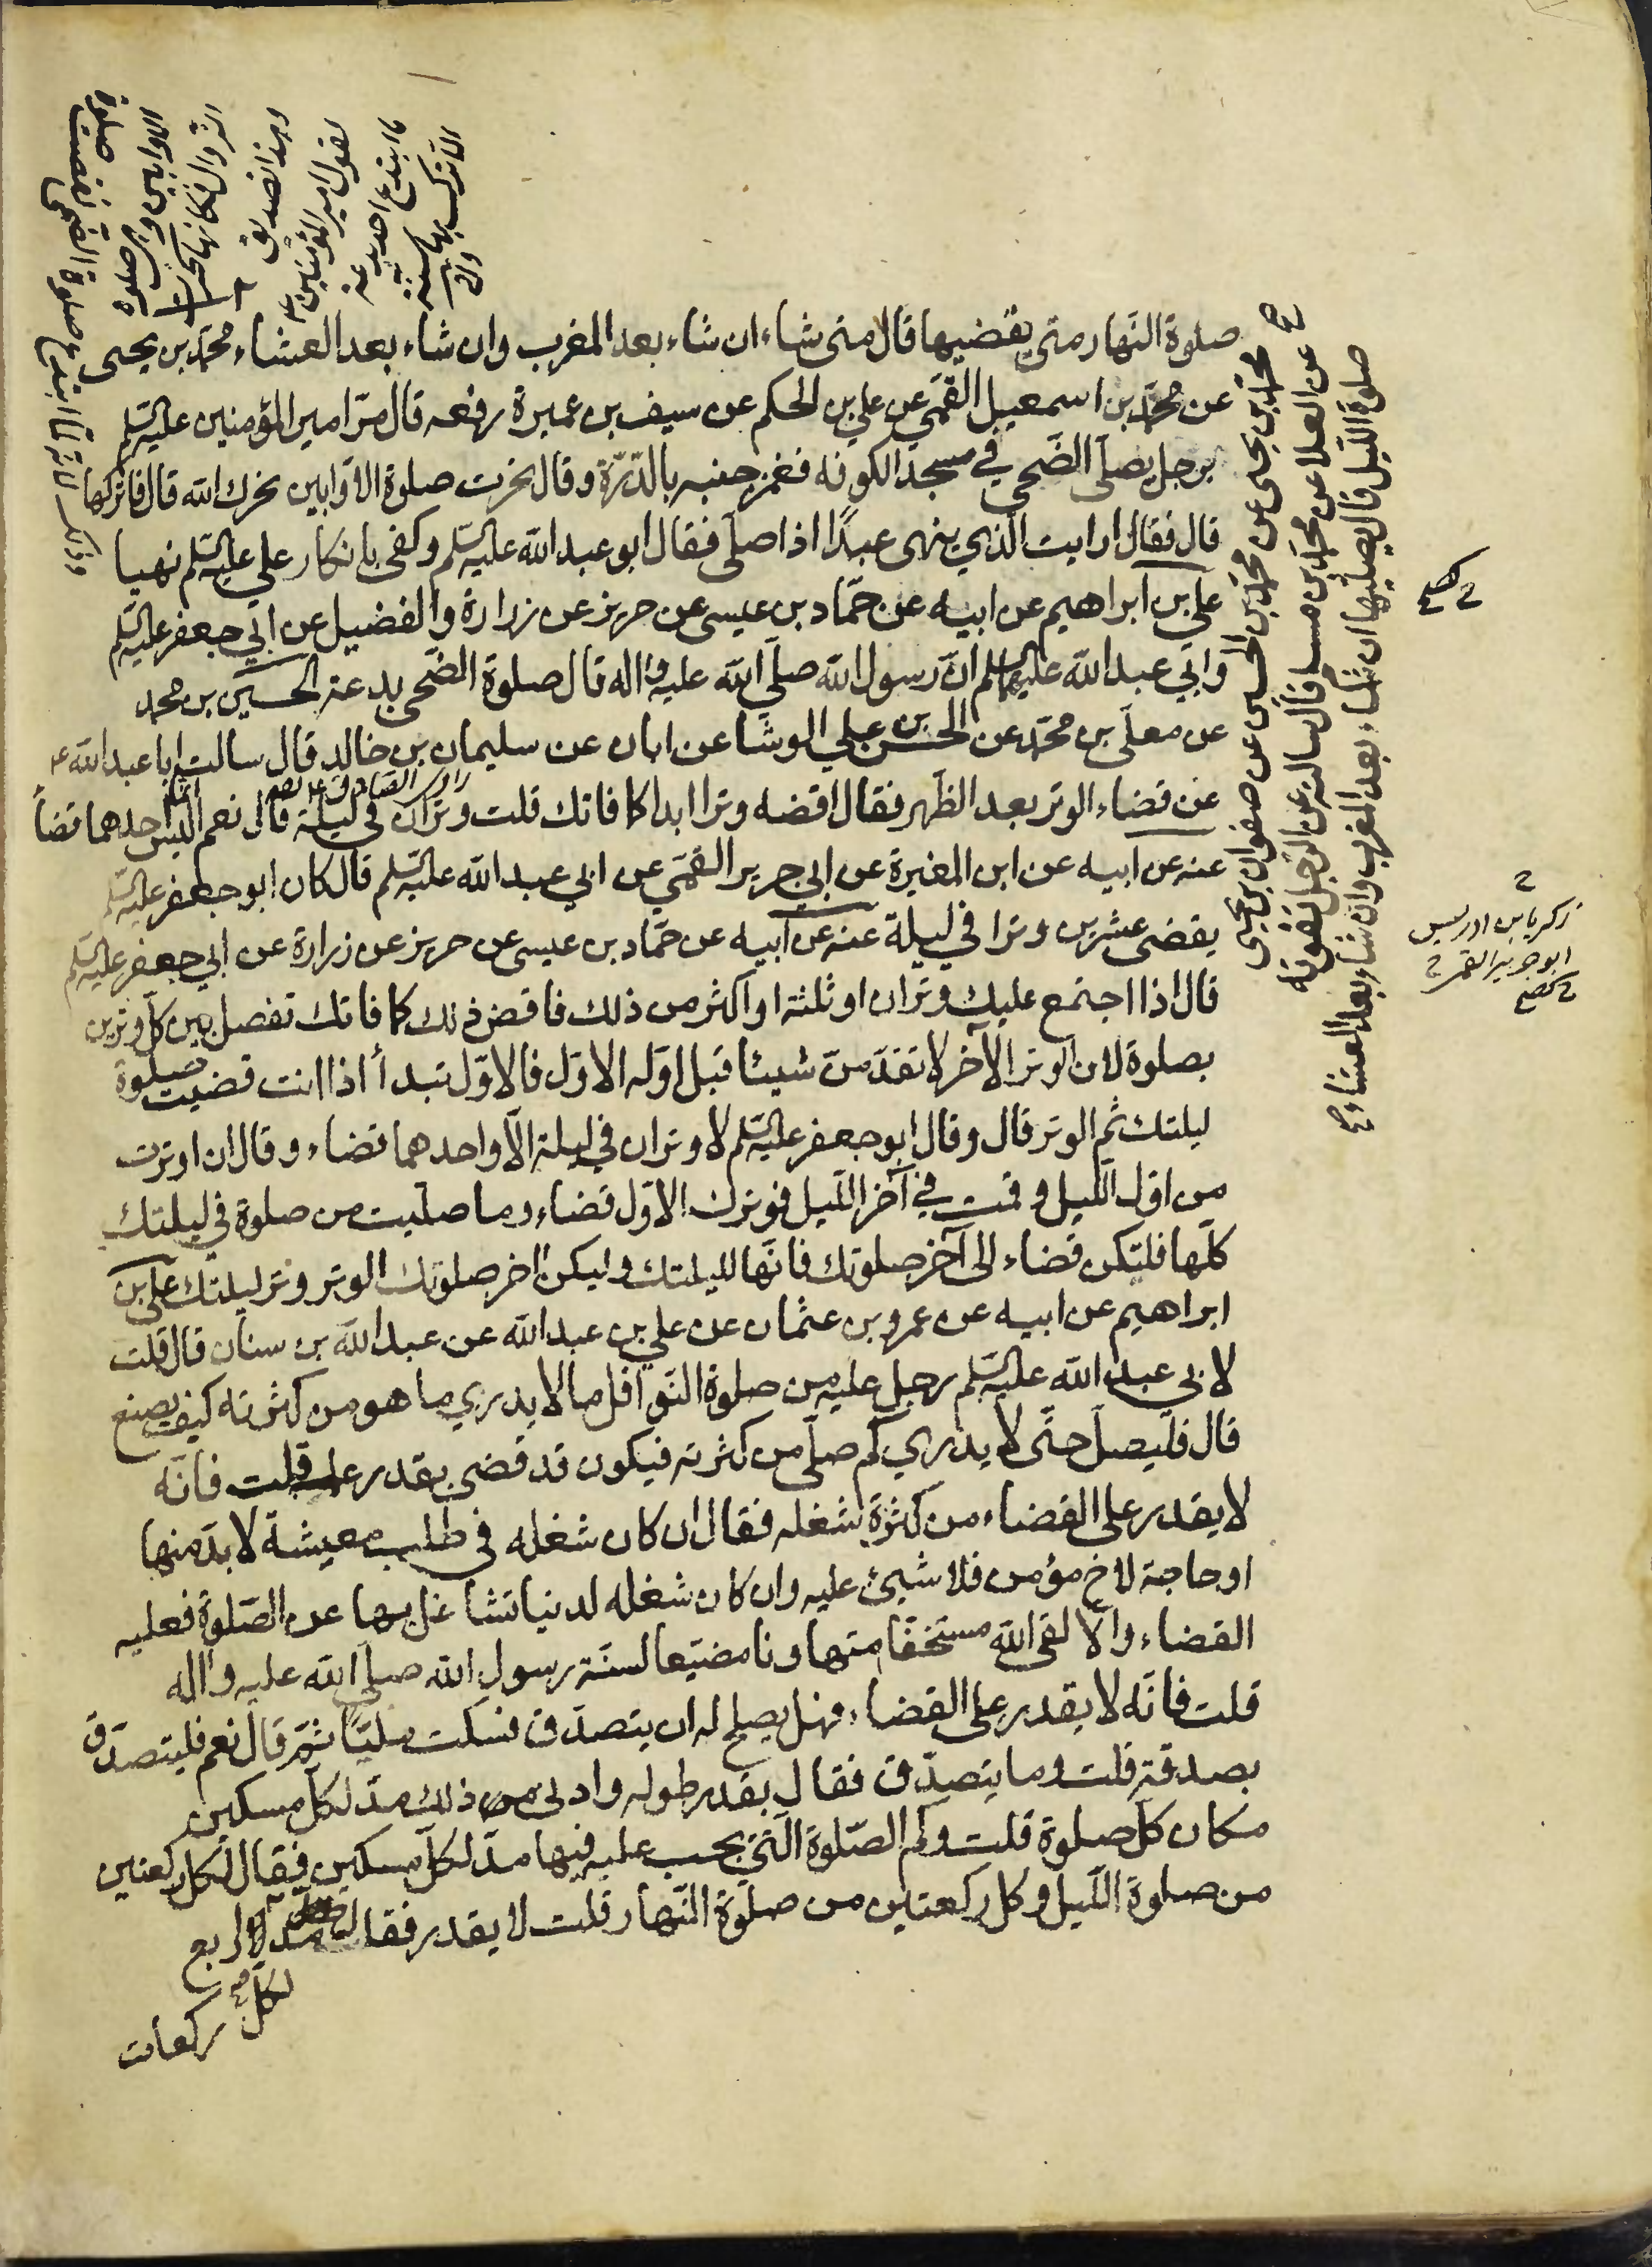 صلوة النهار متى يقضيها قال متى شاء ان شاء بعد المغرب وان شاء بعد العشاء محمد بن يحيى
عن محمد بن اسمعيل القمي عن علي بن الحكم عن سيف بن عميرة رفعه قال مر امير المؤمنين عليه السلم
برجل يصلى الضحى في مسجد الكوفه فغمز جنبه بالدرة وقال نحرت صلوة الاوابين نحرك الله قال فاتركها
قال فقال ارايت الذي ينهى عبدا اذا صلى فقال ابو عبد الله عليه السلم وكفى بانكار علي عليه السلم نهيا
علي بن ابراهيم عن ابيه عن حماد بن عيسى عن حريز عن زرارة والفضيل عن ابي جعفر عليه السلم
وابي عبد الله عليهما السلم ان رسول الله صلى الله عليه واله قال صلوة الضحى بدعة الحسين بن محمد
عن معلى بن محمد عن الحسن بن علي الوشا عن ابان عن سليمان بن خالد قال سالت ابا عبد الله ع
عن قضاء الوتر بعد الظهر فقال اقضه وترا ابدا كما فاتك قلت وتران في ليلة قال نعم اليس احدهما قضاً
عنه عن ابيه عن ابن المغيرة عن ابي جرير القمي عن ابي عبد الله عليه السلم قال كان ابو جعفر عليه السلم
يقضى عشرين وترا في ليلة عنه عن ابيه عن حماد بن عيسى عن حريز عن زرارة عن ابي جعفر عليه السلم
قال اذا اجتمع عليك وتران او ثلثة او اكثر من ذلك فاقض ذلك كما فاتك تفصل بين كل وترين
بصلوة لان الوتر الآخر لا تقدمن شيئا قبل اوله الاول فالاول تبدأ اذا انت قضيت صلوة
ليلتك ثم الوتر قال وقال ابو جعفر عليه السلم لا وتران في ليلة الا واحدهما قضاء وقال ان اوترت
من اول الليل وقمت في آخر الليل فوترك الاول قضاء وما صليت من صلوة في ليلتك
كلها فليكن قضاء الى آخر صلوتك فانها لليلتك وليكن اخر صلوتك الوتر وتر ليلتك علي بن
ابراهيم عن ابيه عن عمرو بن عثمان عن علي بن عبد الله عن عبد الله بن سنان قال قلت
لابي عبد الله عليه السلم رجل عليه من صلوة النوافل ما لا يدري ما هو من كثرته كيف يصنع
قال فليصل حتى لا يدري كم صلى من كثرته فيكون قد قضى بقدر علمه قلت فانه
لا يقدر على القضاء من كثرة شغله فقال ان كان شغله في طلب معيشة لا بد منها
او حاجة لاخ مؤمن فلا شيئ عليه وان كان شغله لدنيا تشاغل بها عن الصلوة فعليه
القضاء والا لقى الله مستخفا متهاونا مضيعا لسنة رسول الله صلى الله عليه واله
قلت فانه لا يقدر على القضاء فهل يصلح له ان يتصدق فسكت مليا ثم قال نعم فليتصدق
بصدقة قلت وما يتصدق فقال بقدر طوله وادنى من ذلك مد لكل مسكين
مكان كل صلوة قلت وكم الصلوة التي يجب عليه فيها مد لكل مسكين فقال لكل ركعتين
من صلوة الليل وكل ركعتين من صلوة النهار قلت لا يقدر فقال مد لاربع
لكل
ركعات
محمد بن يحيى عن محمد بن الحسين عن صفوان بن يحيى
عن العلا عن محمد بن مسلم قال سالته عن الرجل تفوته
صلوة الليل قال يصليها ان شاء بعد المغرب وان شاء بعد العشاء صح
زكريا بن ادريس
ابو جرير القمي
الاوابين وهي صلوة
الزوال فكانها نحرت
وهذا تصديق
لقول امير المؤمنين ع
ما ابتدع احد بدعة
الا ترك بها سنة